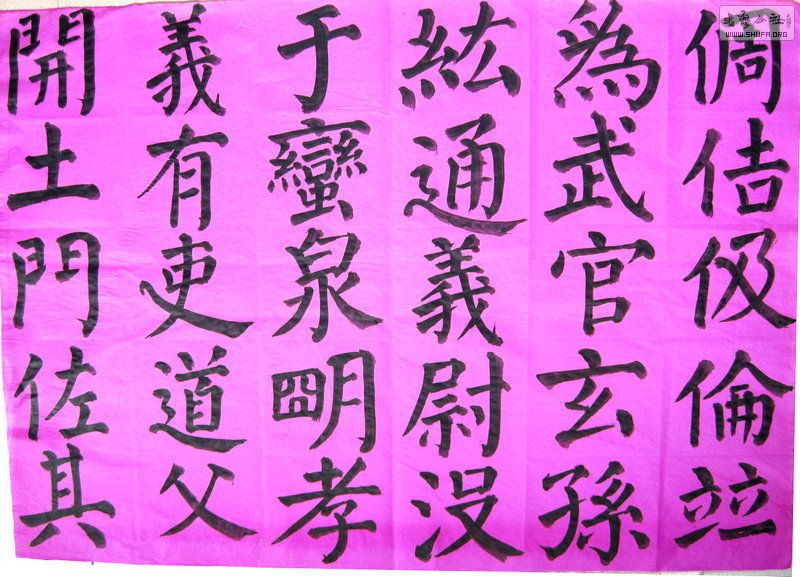 倜佶伋倫竝
為武官玄孫
紘通義尉没
于蠻泉朙孝
義有吏道父
開土門佐其
書藝公社
WWW.SHUFA.ORG